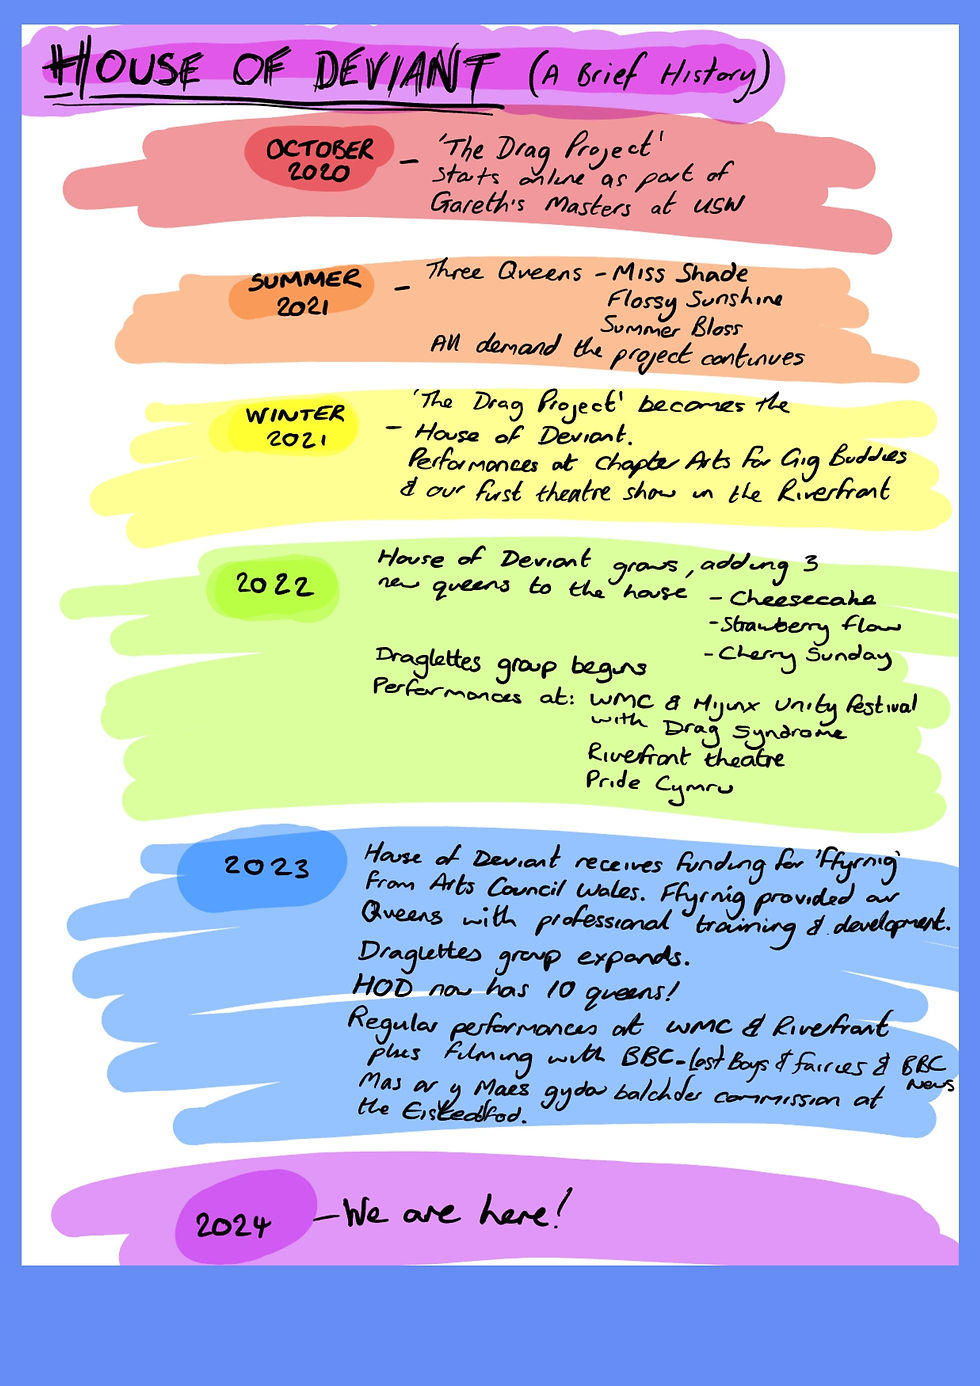 HOUSE OF DEVIANT (A Brief History)
OCTOBER 2020 – 'The Drag Project'
starts online as part of
Gareth's Masters at USW
SUMMER 2021 – Three Queens – Miss Shade
Flossy Sunshine
Summer Bloss
All demand the project continues
WINTER 2021 – 'The Drag Project' becomes the
House of Deviant.
Performances at Chapter Arts for Gig Buddies
& our first theatre show in the Riverfront
2022
House of Deviant grows, adding 3
new queens to the house – Cheesecake
- Strawberry flow
- Cherry Sunday
Draglettes group begins
Performances at: WMC & Hijinx Unity festival
with Drag Syndrome
Riverfront theatre
Pride Cymru
2023
House of Deviant receives funding for 'Ffyrnig'
from Arts Council Wales. Ffyrnig provided our
Queens with professional training & development.
Draglettes group expands.
HOD now has 10 queens!
Regular performances at WMC & Riverfront
plus filming with BBC - Lost Boys & fairies & BBC News
Mas ar y Maes gyda balchder commission at
the Eisteddfod.
2024 – We are here!